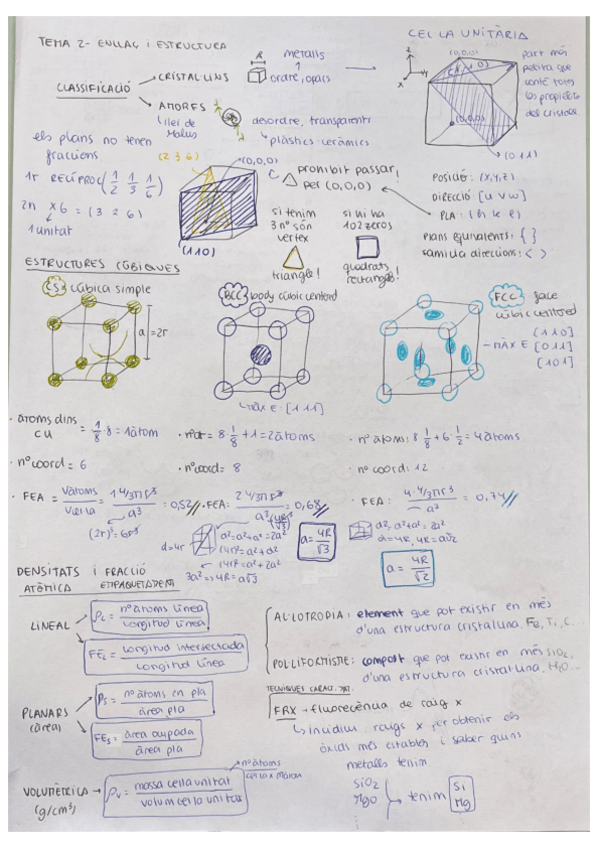 TEMA 2- ENLLAÇ i ESTRUCTURA
CEL·LA UNITÀRIA
CLASSIFICACIÓ
CRISTAL·LINS
metalls
ordre, opacs
AMORFS
desordre, transparents
plàstics·ceràmics
z
y
x
(0,0,0)
(0,0,0)
(0 1 1)
part més
petita que
conté totes
les propietats
del cristall
els plans no tenen
fraccions
1r RECÍPROC (1/2 1/3 1/6)
2n x6 = (3 2 6)
1 unitat
(2 3 6)
(0,0,0)
(1 1 0)
prohibit passar
per (0,0,0)
si tenim
3 nº són
vertex
triangle!
si hi ha
1 o 2 zeros
quadrats
rectangle!
POSICIÓ: (X,Y,Z)
DIRECCIÓ [u v w]
PLA: (h k l)
Plans equivalents: { }
família direccions: < >
ESTRUCTURES CÚBIQUES
CS cúbica simple
a=2r
BCC body cúbic centered
MÀX E: [1 1 1]
FCC face
cúbic centered
MÀX E
[1 1 0]
[0 1 1]
[1 0 1]
· àtoms dins
CU = 1/8·8 = 1 àtom
· nºat = 8·1/8 + 1 = 2 àtoms
· nº àtoms: 8 1/8 + 6·1/2 = 4 àtoms
· nºcoord = 6
· nºcoord = 8
· nº coord: 12
· FEA = Vàtoms/Vcel·la = 1 4/3πr³/a³ = 0,52
(2r)³ = 6r³
· FEA: 2 4/3πr³/a³ = 0,68
(4R/√3)
d=4r
a²+a²+a²=2a²
3a² => 4R = a√3
a = 4R/√3
· FEA: 4·4/3πr³/a³ = 0,74
d², a²+a²=2a²
d=4R, 4R=a√2
a = 4R/√2
DENSITATS i FRACCIÓ
ATÒMICA EMPAQUETAMENT
LINEAL
ρL = nºàtoms línea/longitud línea
FEL = Longitud intersectada/Longitud línea
PLANARS
(àrea)
ρS = nºàtoms en pla/àrea pla
FES = àrea ocupada/àrea pla
VOLUMÈTRICA
(g/cm³)
ρV = massa cel·la unitat/volum cel·la unitat
nº àtoms
AL·LOTROPIA: element que pot existir en més
d'una estructura cristal·lina. Fe, Ti, C...
POLIFORMISME: compost que pot existir en més
d'una estructura cristal·lina.
SiO2,
TÈCNIQUES CARACT.
FRX → fluorescència de raig x
Incidium raigs x per obtenir els
òxids més estables i saber quins
metalls tenim
SiO2
MgO
tenim
Si
Mg